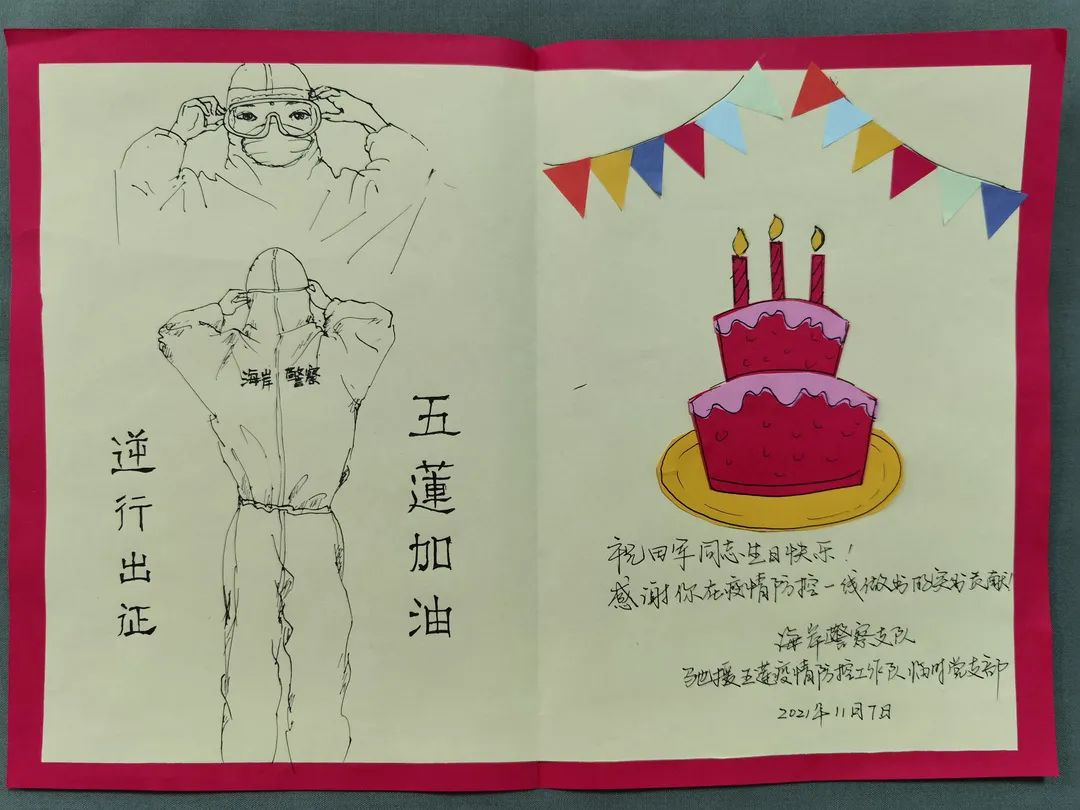 海岸 警察
五蓮加油
逆行出征
祝田军同志生日快乐！
感谢你在疫情防控一线做出的突出贡献！
海岸警察支队
驰援五莲疫情防控工作队临时党支部
2021年11月7日